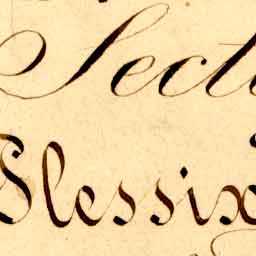 Secti
Plessix